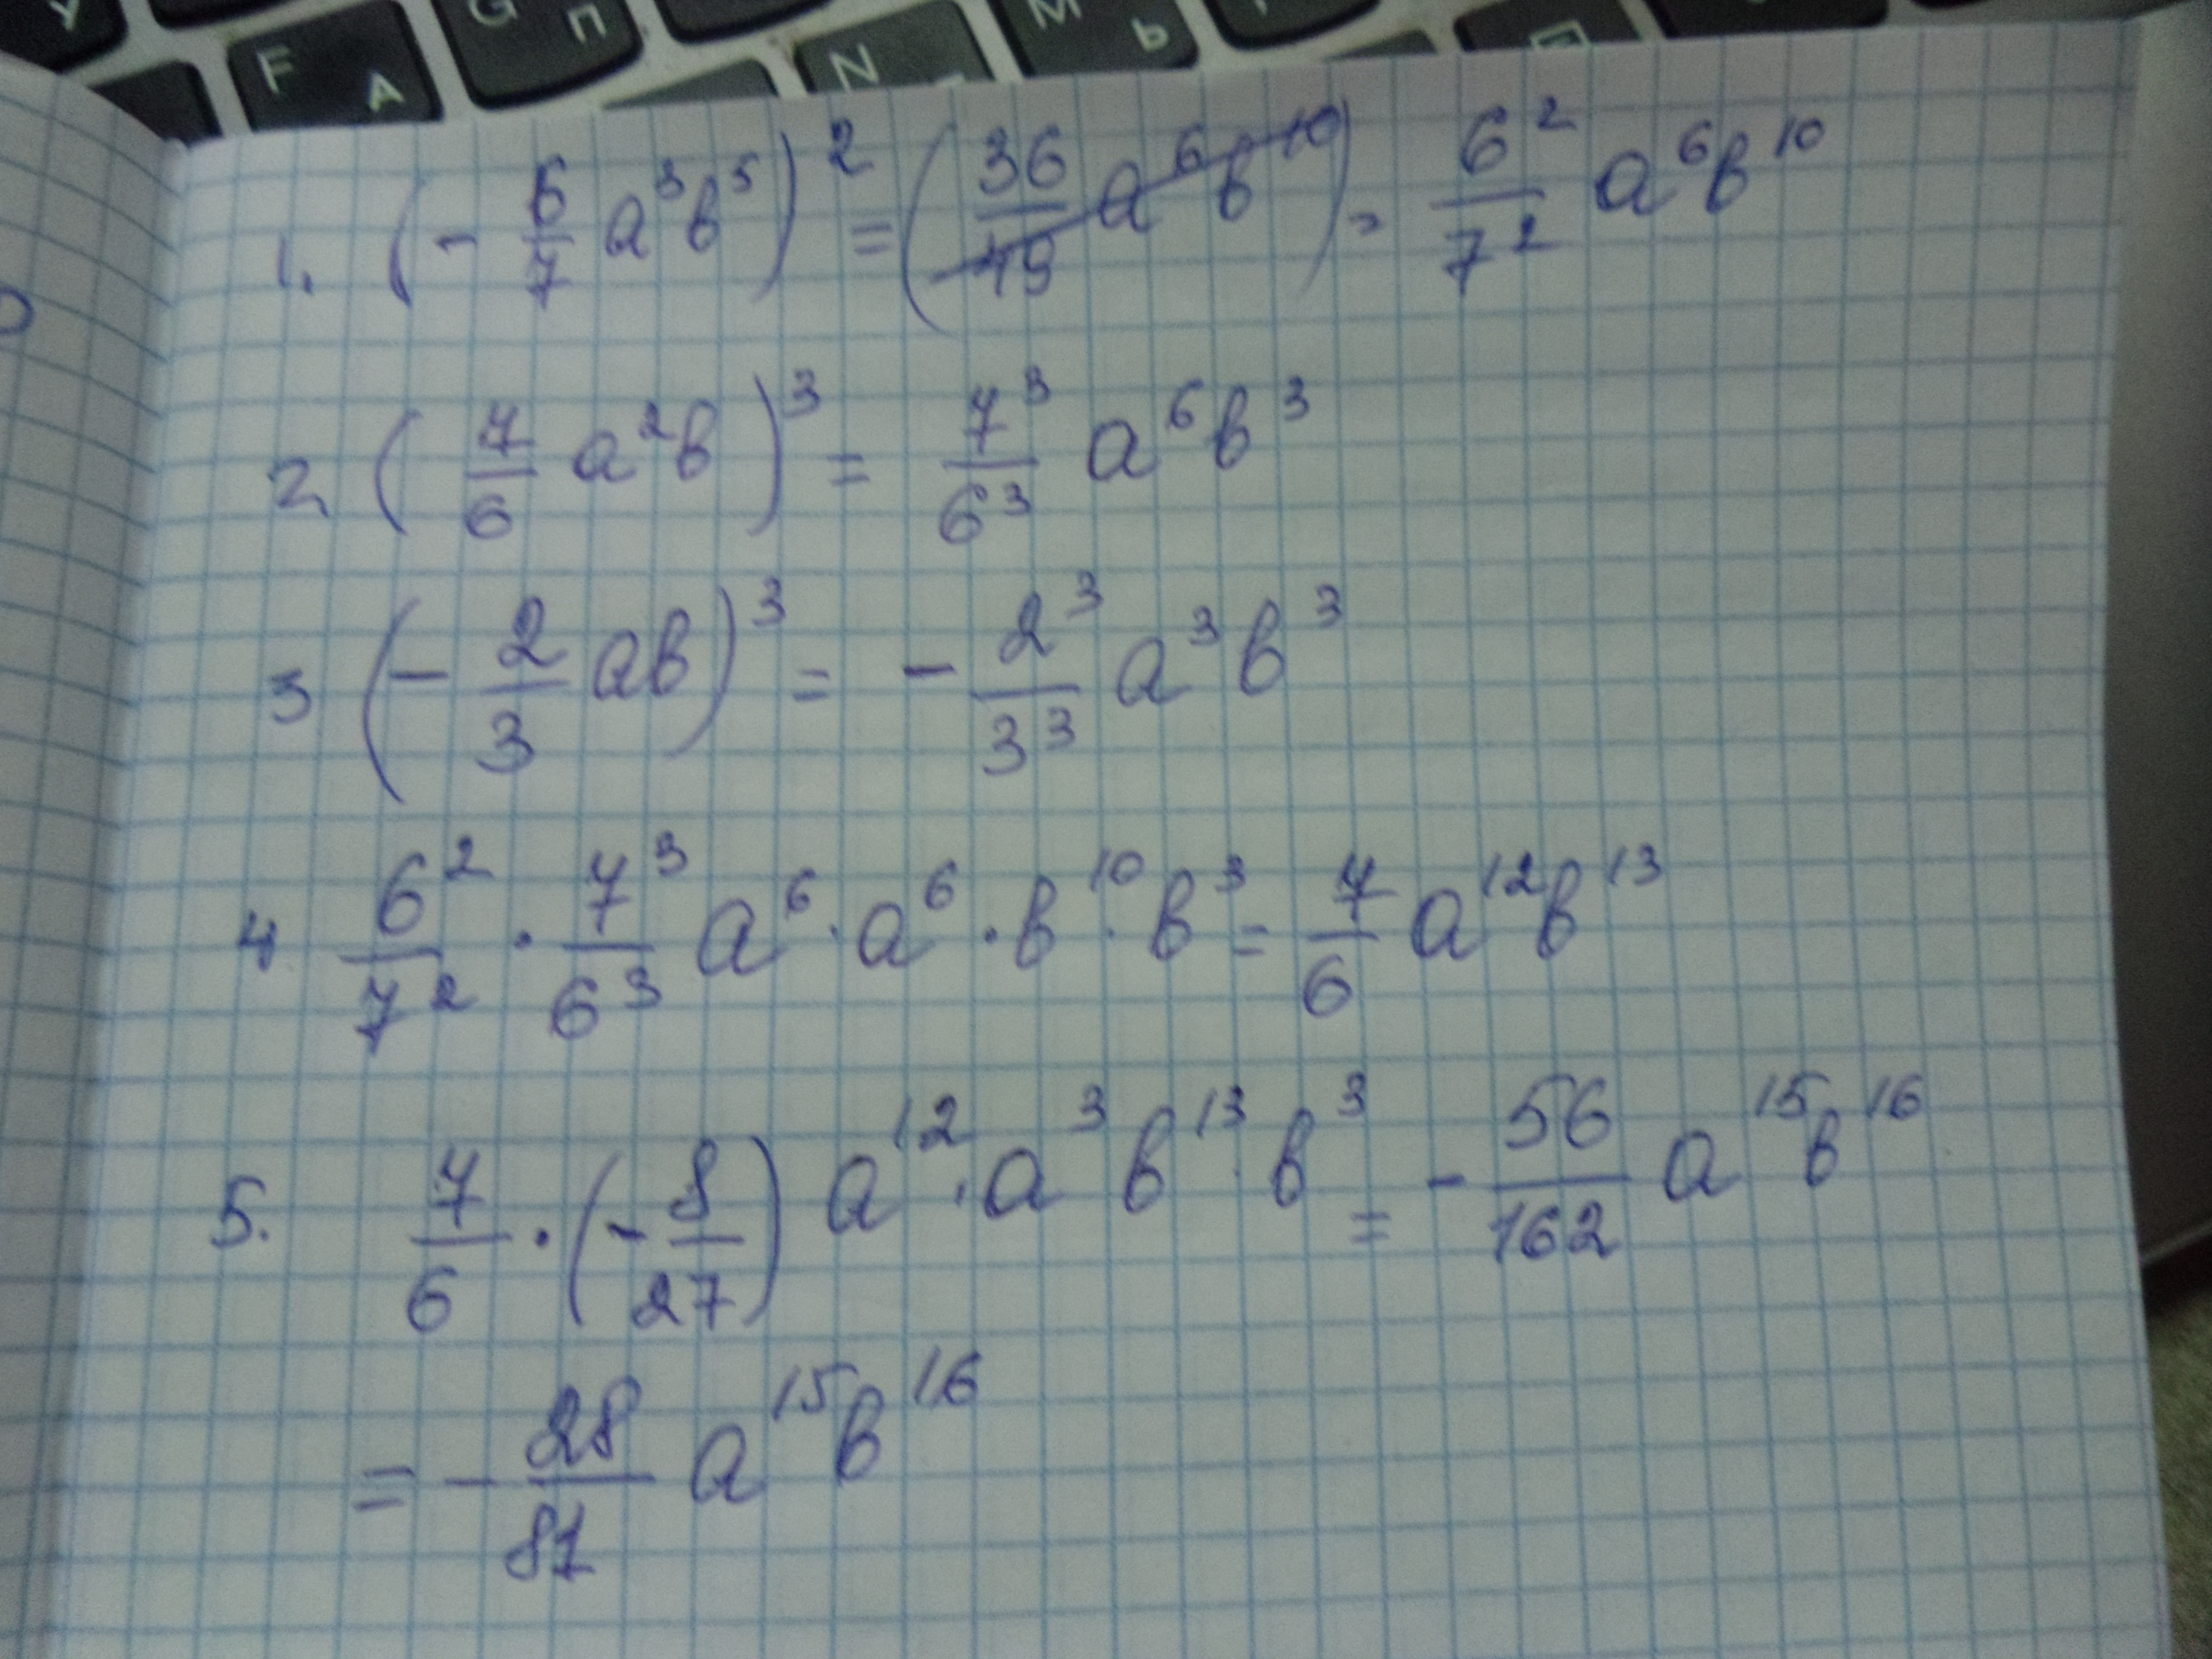 У F А G П N М Ь
1. (- 6/7 a³b⁵)² = (36/49 a⁶b¹⁰) = 6²/7² a⁶b¹⁰
2. (7/6 a²b)³ = 7³/6³ a⁶b³
3 (- 2/3 ab)³ = - 2³/3³ a³b³
4 6²/7² · 7³/6³ a⁶ · a⁶ · b¹⁰ · b³ = 7/6 a¹²b¹³
5. 7/6 · (- 8/27) a¹² · a³ b¹³ · b³ = - 56/162 a¹⁵b¹⁶
= - 28/81 a¹⁵b¹⁶